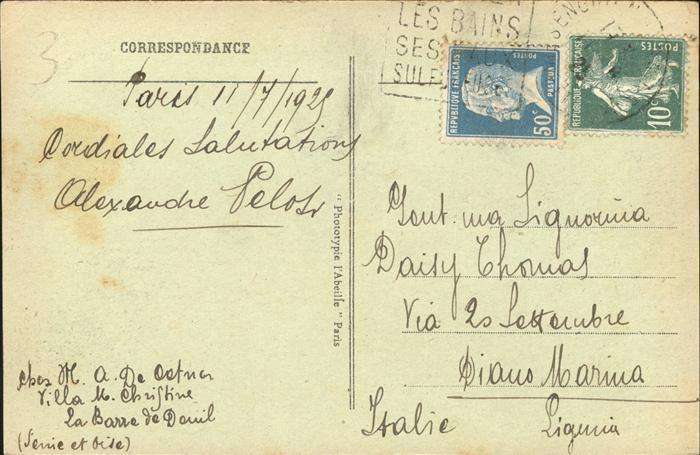 3
CORRESPONDANCE
LES BAINS
SES
SULF
REPUBLIQUE FRANÇAISE
POSTES
PASTEUR
50c
REPUBLIQUE FRANÇAISE
POSTES
10c
Paris 11/7/1925
Cordiales Salutations
Alexandre Pelosi
" Phototypie l'Abeille " Paris
Gent.ma Signorina
Daisy Thomas
Via 20 Settembre
Diano Marina
Italie Liguria
Chez M. A. De
Villa M. Christine
La Barre de Deuil
(Seine et Oise)